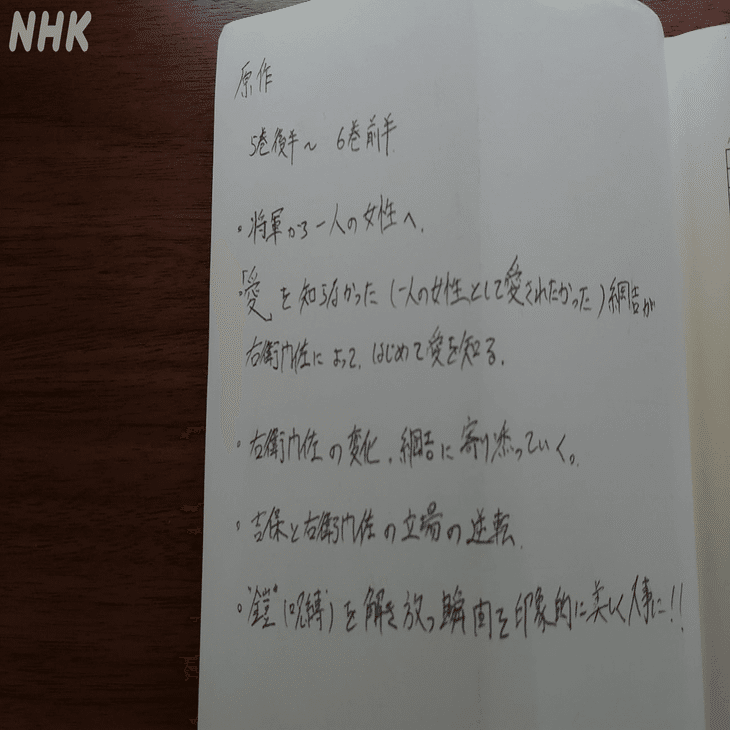 NHK
原作
5巻後半〜 6巻前半
・将軍から一人の女性へ.
「愛」を知らなかった(一人の女性として愛されたかった)綱吉が
右衛門佐によって、はじめて愛を知る.
・右衛門佐の変化.綱吉に寄り添っていく。
・吉保と右衛門佐の立場の逆転.
・"鎧"(呪縛)を解き放つ瞬間を印象的に美しく大事に!!